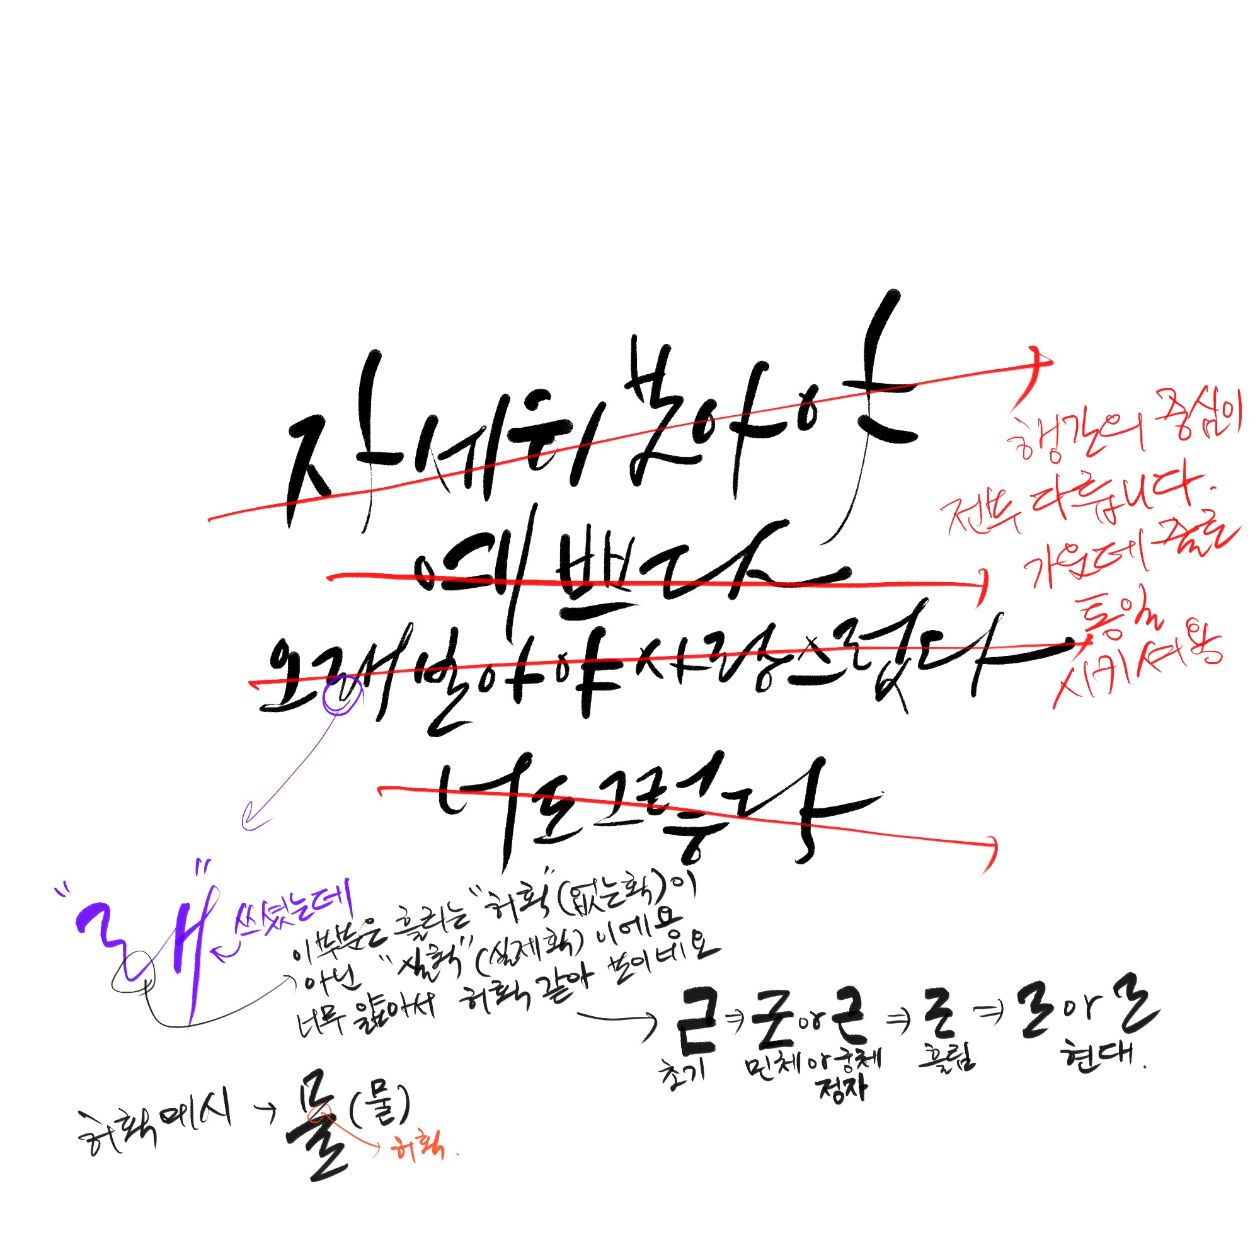 자세히 보아야
예쁘다
오래 보아야 사랑스럽다
너도 그렇다
행간의 중심이
전부 다릅니다.
가운데 줄로
통일
시키셔요
"래" 쓰셨는데
이 부분은 흘리는 "허획" (없는획)이
아닌 "실획" (실제획) 이에요
너무 얇아서 허획 같아 보이네요
ㄹ ⇒ ㄹ or ㄹ ⇒ ㄹ ⇒ ㄹ or ㄹ
초기 민체 or 궁체 흘림 현대.
정자
허획 예시 → 물 (물)
허획.